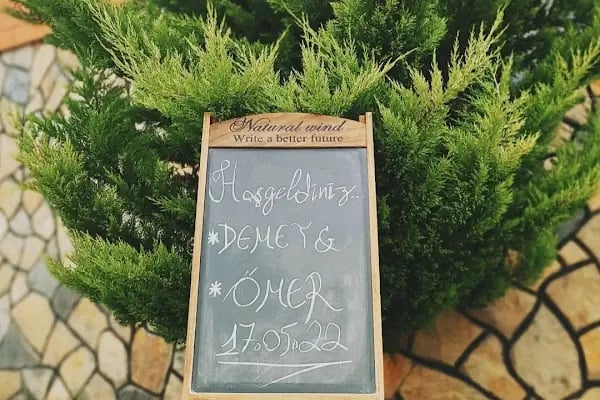 Natural wind
Write a better future
Hoşgeldiniz...
* DEMET &
* ÖMER
17.05.22